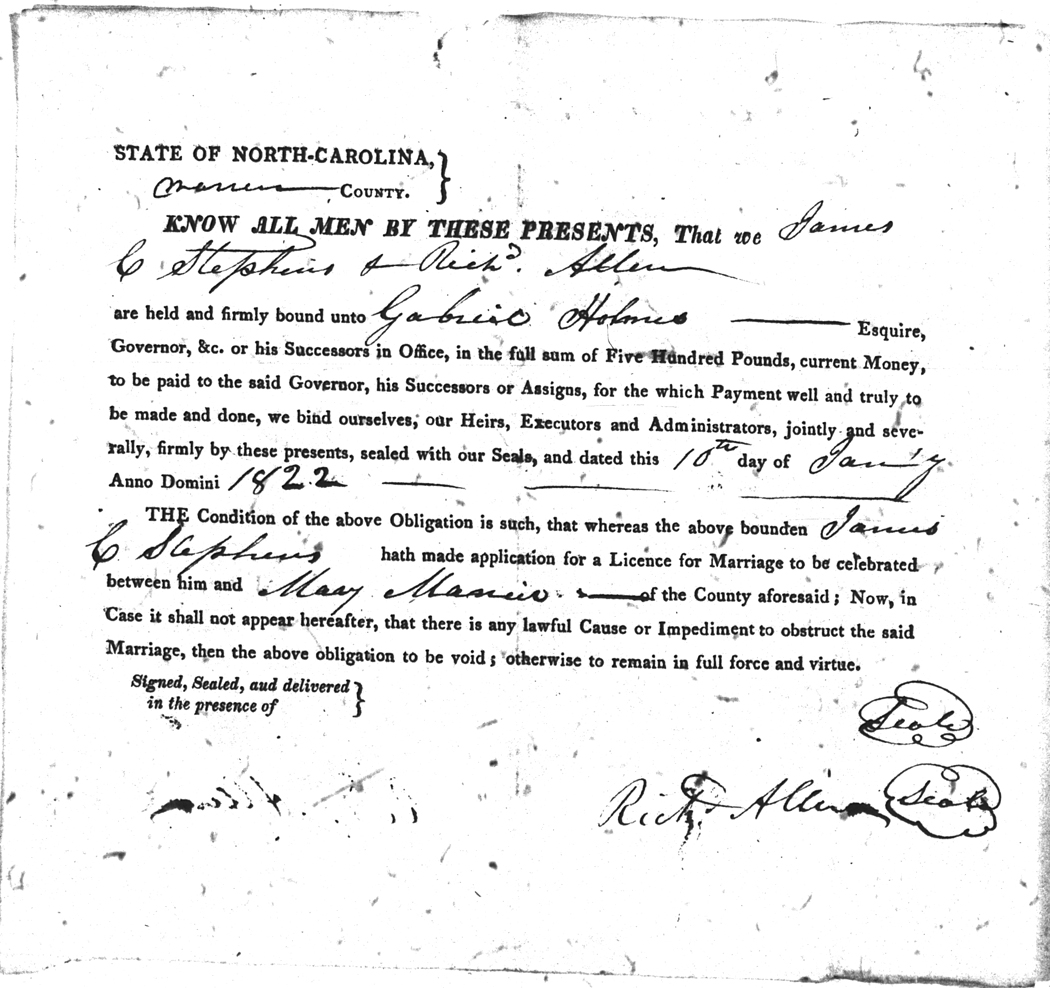 STATE OF NORTH-CAROLINA,
Warren COUNTY.
KNOW ALL MEN BY THESE PRESENTS, That we James
C Stephens & Richd. Allen
are held and firmly bound unto Gabriel Holmes Esquire,
Governor, &c. or his Successors in Office, in the full sum of Five Hundred Pounds, current Money,
to be paid to the said Governor, his Successors or Assigns, for the which Payment well and truly to
be made and done, we bind ourselves, our Heirs, Executors and Administrators, jointly and seve-
rally, firmly by these presents, sealed with our Seals, and dated this 10th day of Jany
Anno Domini 1822
THE Condition of the above Obligation is such, that whereas the above bounden James
C Stephens hath made application for a Licence for Marriage to be celebrated
between him and Mary of the County aforesaid; Now, in
Case it shall not appear hereafter, that there is any lawful Cause or Impediment to obstruct the said
Marriage, then the above obligation to be void; otherwise to remain in full force and virtue.
Signed, Sealed, aud delivered
in the presence of
Seal
Richd. Allen Seal